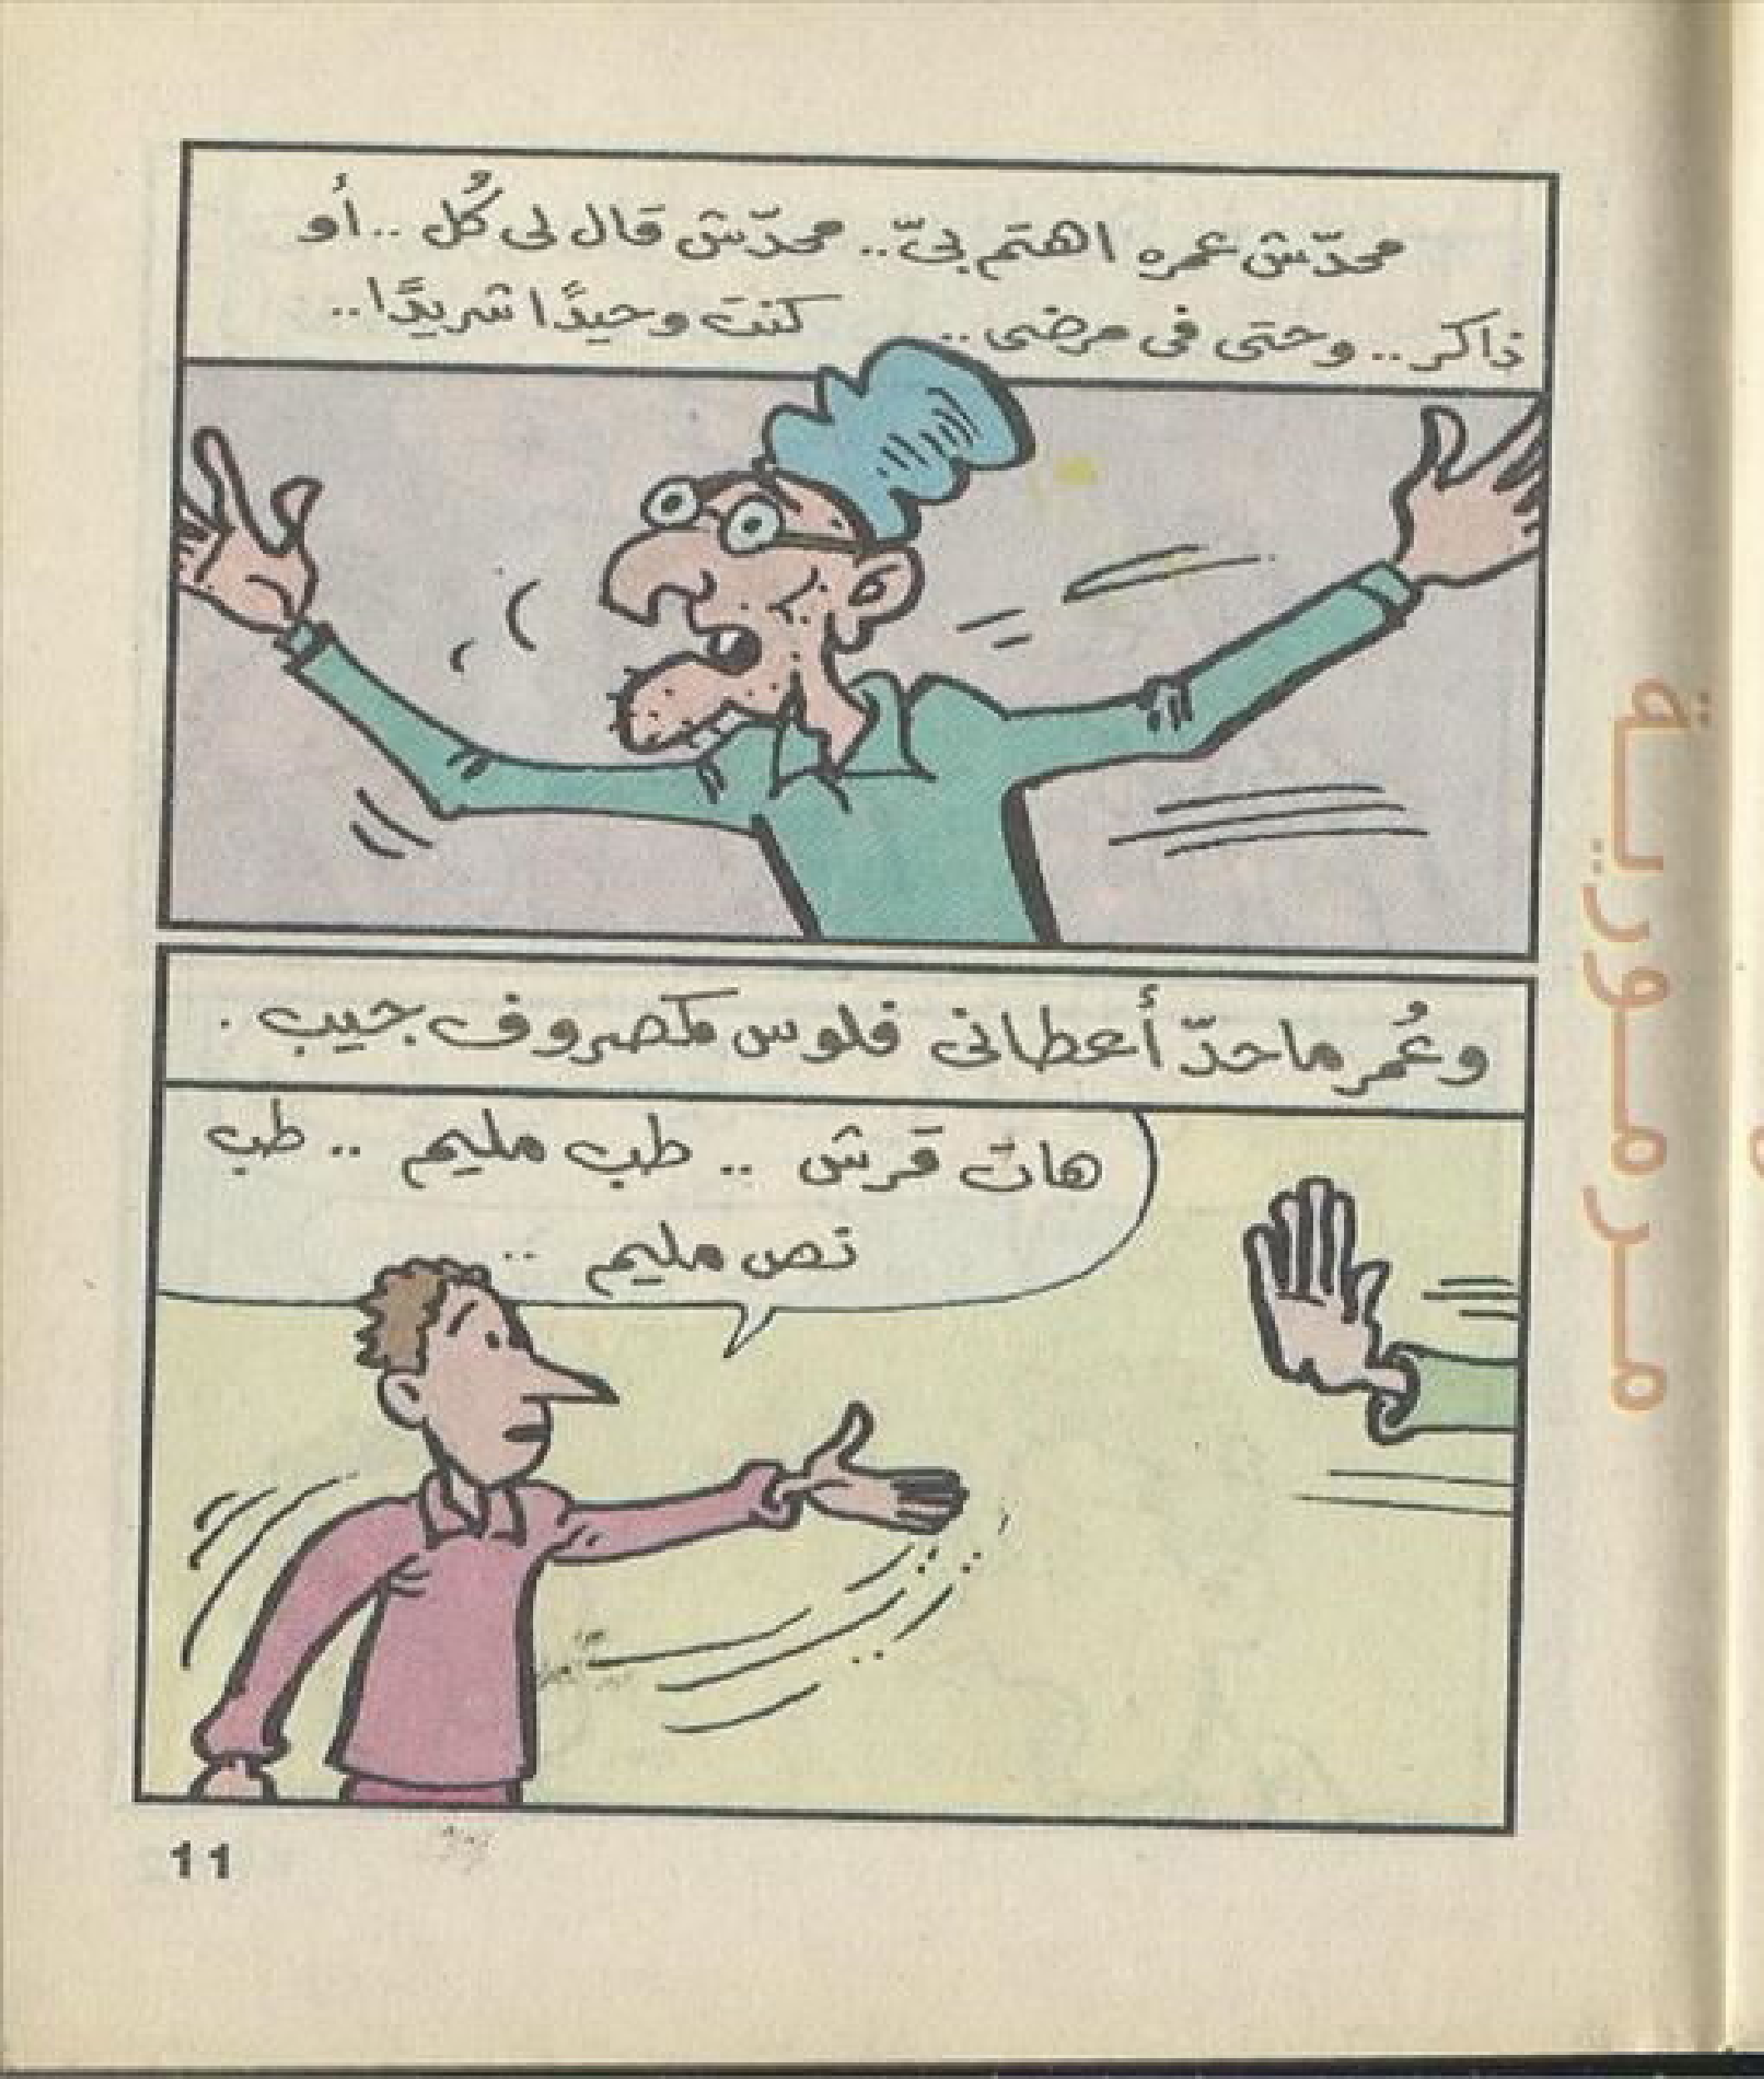 محدّش عمره اهتم بيّ.. محدّش قال لى كُل .. أو
ذاكر .. وحتى فى مرضى .. كنت وحيدًا شريدًا ..
وعُمر ماحدّ أعطانى فلوس كمصروف جيب .
هات قرش .. طب مليم .. طب
نص مليم ..
مرمورية
11